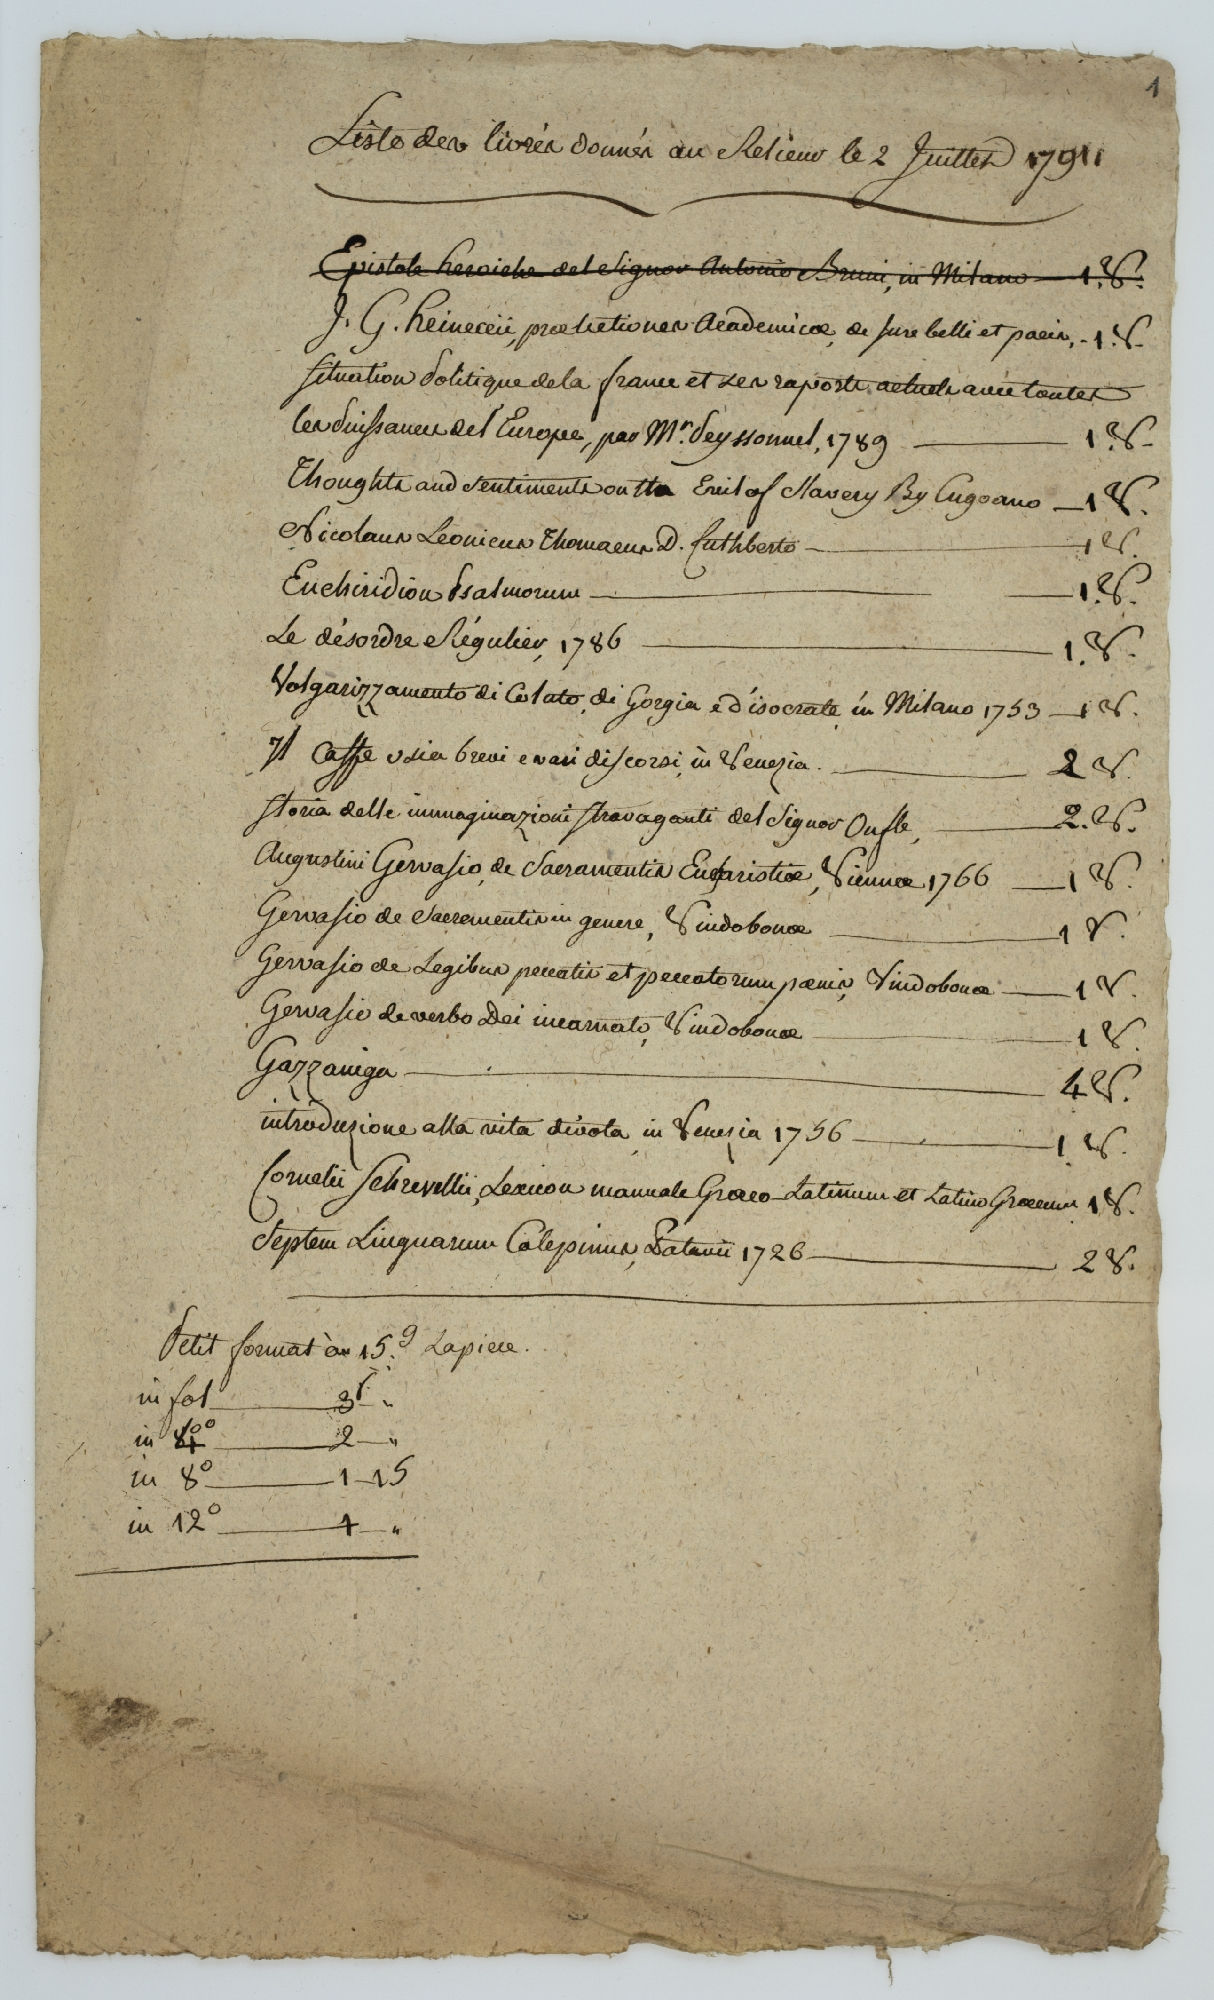 1
Liste des livres donnés au Relieur le 2 Juillet 1791
Epistole heroiche del Signor Antonio Bruni, in Milano — 1. V.
J. G. heineccii, prælectiones Academicæ, de jure belli et pacis, - 1. V.
situation Politique de la france et ses raports actuels avec toutes
les Puissances del'Europe, par Mr. Peyssonnel, 1789 — 1. V.
Thoughts and Sentiments on the Evil of Slavery By Cugoano — 1 V.
Nicolaus Leonicus Thomaeus D. Cuthberto — 1 V.
Enchiridion Psalmorum — 1. V.
Le désordre Régulier, 1786 — 1. V.
Volgarizzamento di Celato, di Gorgia e d'isocrate in Milano 1753 — 1 V.
Il Caffe osia brevi e vari discorsi in Venezia. — 2 V.
storia delle immaginazioni stravaganti del Signor Oufle, — 2. V.
Augustini Gervasio, de Sacramentis Eucaristiæ, Viennæ 1766 — 1 V.
Gervasio de Sacrementis in genere, Vindobonæ — 1 V.
Gervasio de Legibus peccatis et peccatorum pænis, Vindobonæ — 1 V.
Gervasio de verbo Dei incarnato, Vindobonæ — 1 V.
Gazzaniga — 4 V.
introduzione alla vita divota in Venezia 1756 — 1 V.
Cornelii Schrevellii, Lexicon manuale Græco-Latinum et Latino Græcum 1 V.
Septem Linguarum Calepinus, Patavii 1726 — 2 V.
Petit format à 15.s Lapiece.
in fol — 3 "
in 4o — 2 — "
in 8o — 1 — 15
in 12o — 1 — "